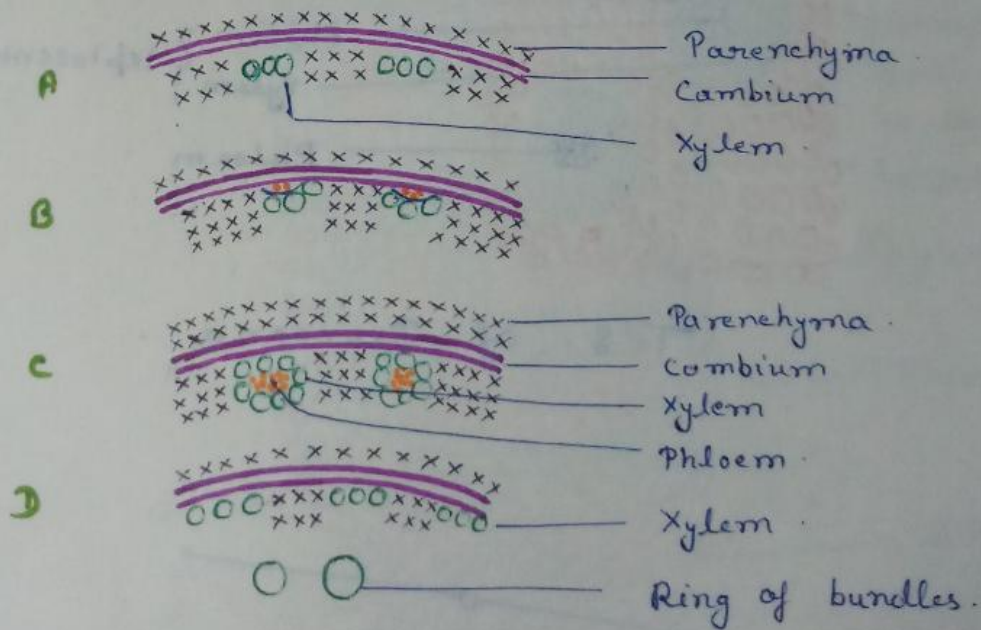 Parenchyma.
A
Cambium
Xylem.
B
Parenchyma.
C
Combium
Xylem
Phloem.
D
Xylem.
Ring of bundles.